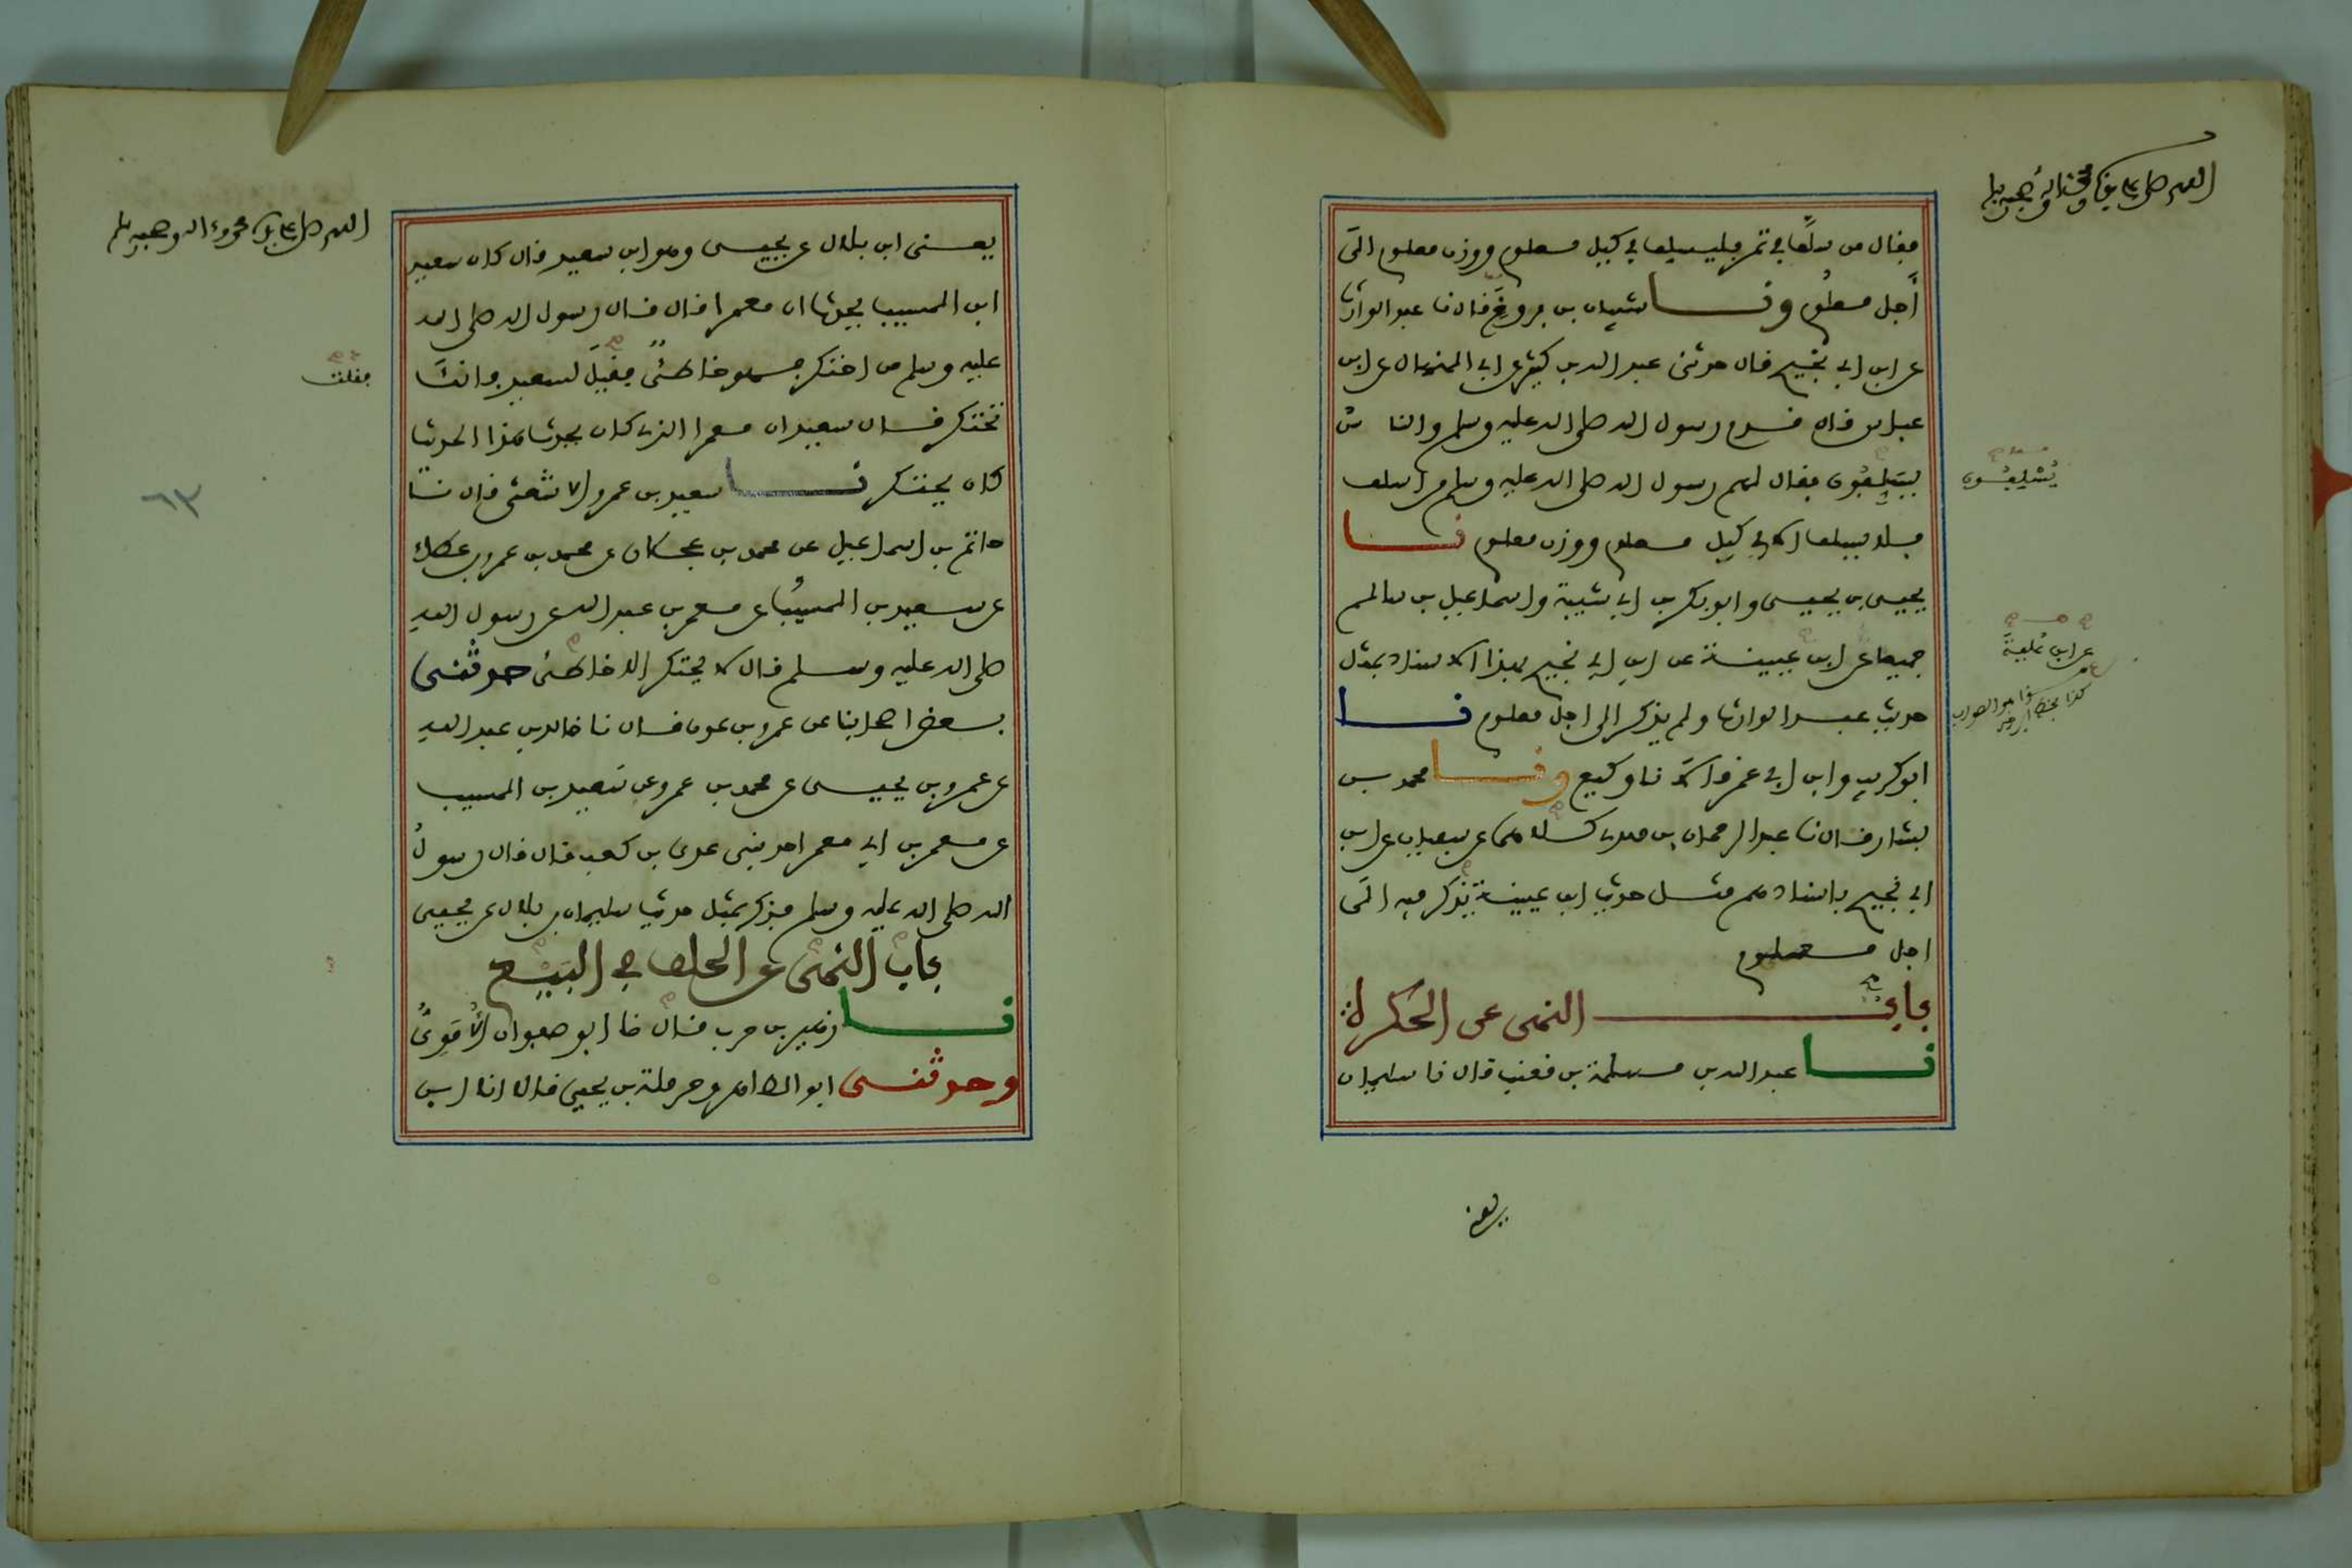 اللهم صل على سيدنا محمد وآله وصحبه وسلم
فقال من سلف في تمر فليسلف في كيل معلوم ووزن معلوم إلى
أجل معلوم ونا شيبان بن فروخ قال نا عبد الوارث
عن ابن أبي نجيح قال حدثني عبد الله بن كثير عن أبي المنهال عن ابن
عباس قال قدم رسول الله صلى الله عليه وسلم والناس
يسلفون فقال لهم رسول الله صلى الله عليه وسلم من أسلف
يسلفون
فلا يسلف إلا في كيل معلوم ووزن معلوم نا
يحيى بن يحيى وأبو بكر بن أبي شيبة وإسماعيل بن سالم
جميعا عن ابن عيينة عن ابن أبي نجيح بهذا الإسناد بمثل
عن ابن علية
كذا بخط
هو الصواب
حديث عبد الوارث ولم يذكر إلى أجل معلوم نا
أبو كريب وابن أبي عمر قالا نا وكيع ونا محمد بن
بشار قال نا عبد الرحمان بن مهدي كلاهما عن سفيان عن ابن
أبي نجيح بإسنادهم مثل حديث ابن عيينة يذكر فيه إلى
أجل معلوم
باب النهى عن الحكرة
نا عبد الله بن مسلمة بن قعنب قال نا سليمان
يعنى
اللهم صل على سيدنا محمد وآله وصحبه وسلم
يعنى ابن بلال عن يحيى وهو ابن سعيد قال كان سعيد
ابن المسيب يحدث ان معمرا قال قال رسول الله صلى الله
عليه وسلم من احتكر فهو خاطئ فقيل لسعيد فانك
فقلت
تحتكر قال سعيد ان معمرا الذي كان يحدث هذا الحديث
كان يحتكر نا سعيد بن عمرو الاشعثي قال نا
حاتم بن إسماعيل عن محمد بن عجلان عن محمد بن عمرو بن عطاء
عن سعيد بن المسيب عن معمر بن عبد الله عن رسول الله
صلى الله عليه وسلم قال لا يحتكر الا خاطئ حدثني
بعض اصحابنا عن عمرو بن عون قال نا خالد بن عبد الله
عن عمرو بن يحيى عن محمد بن عمرو عن سعيد بن المسيب
عن معمر بن أبي معمر احد بني عدي بن كعب قال قال رسول
الله صلى الله عليه وسلم فذكر بمثل حديث سليمان بن بلال عن يحيى
باب النهى عن الحلف في البيع
نا زهير بن حرب قال نا ابو صفوان الأموي
وحدثني ابو الطاهر وحرملة بن يحيى قالا انا ابن
٦٣